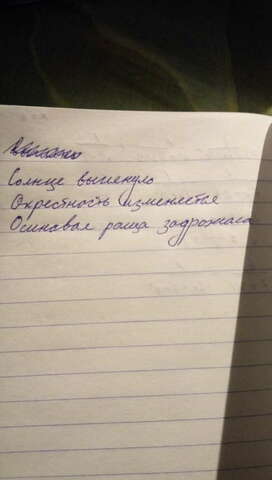 Солнце выгленуло
Окрестность изменеться
Осиновая роща задрожала